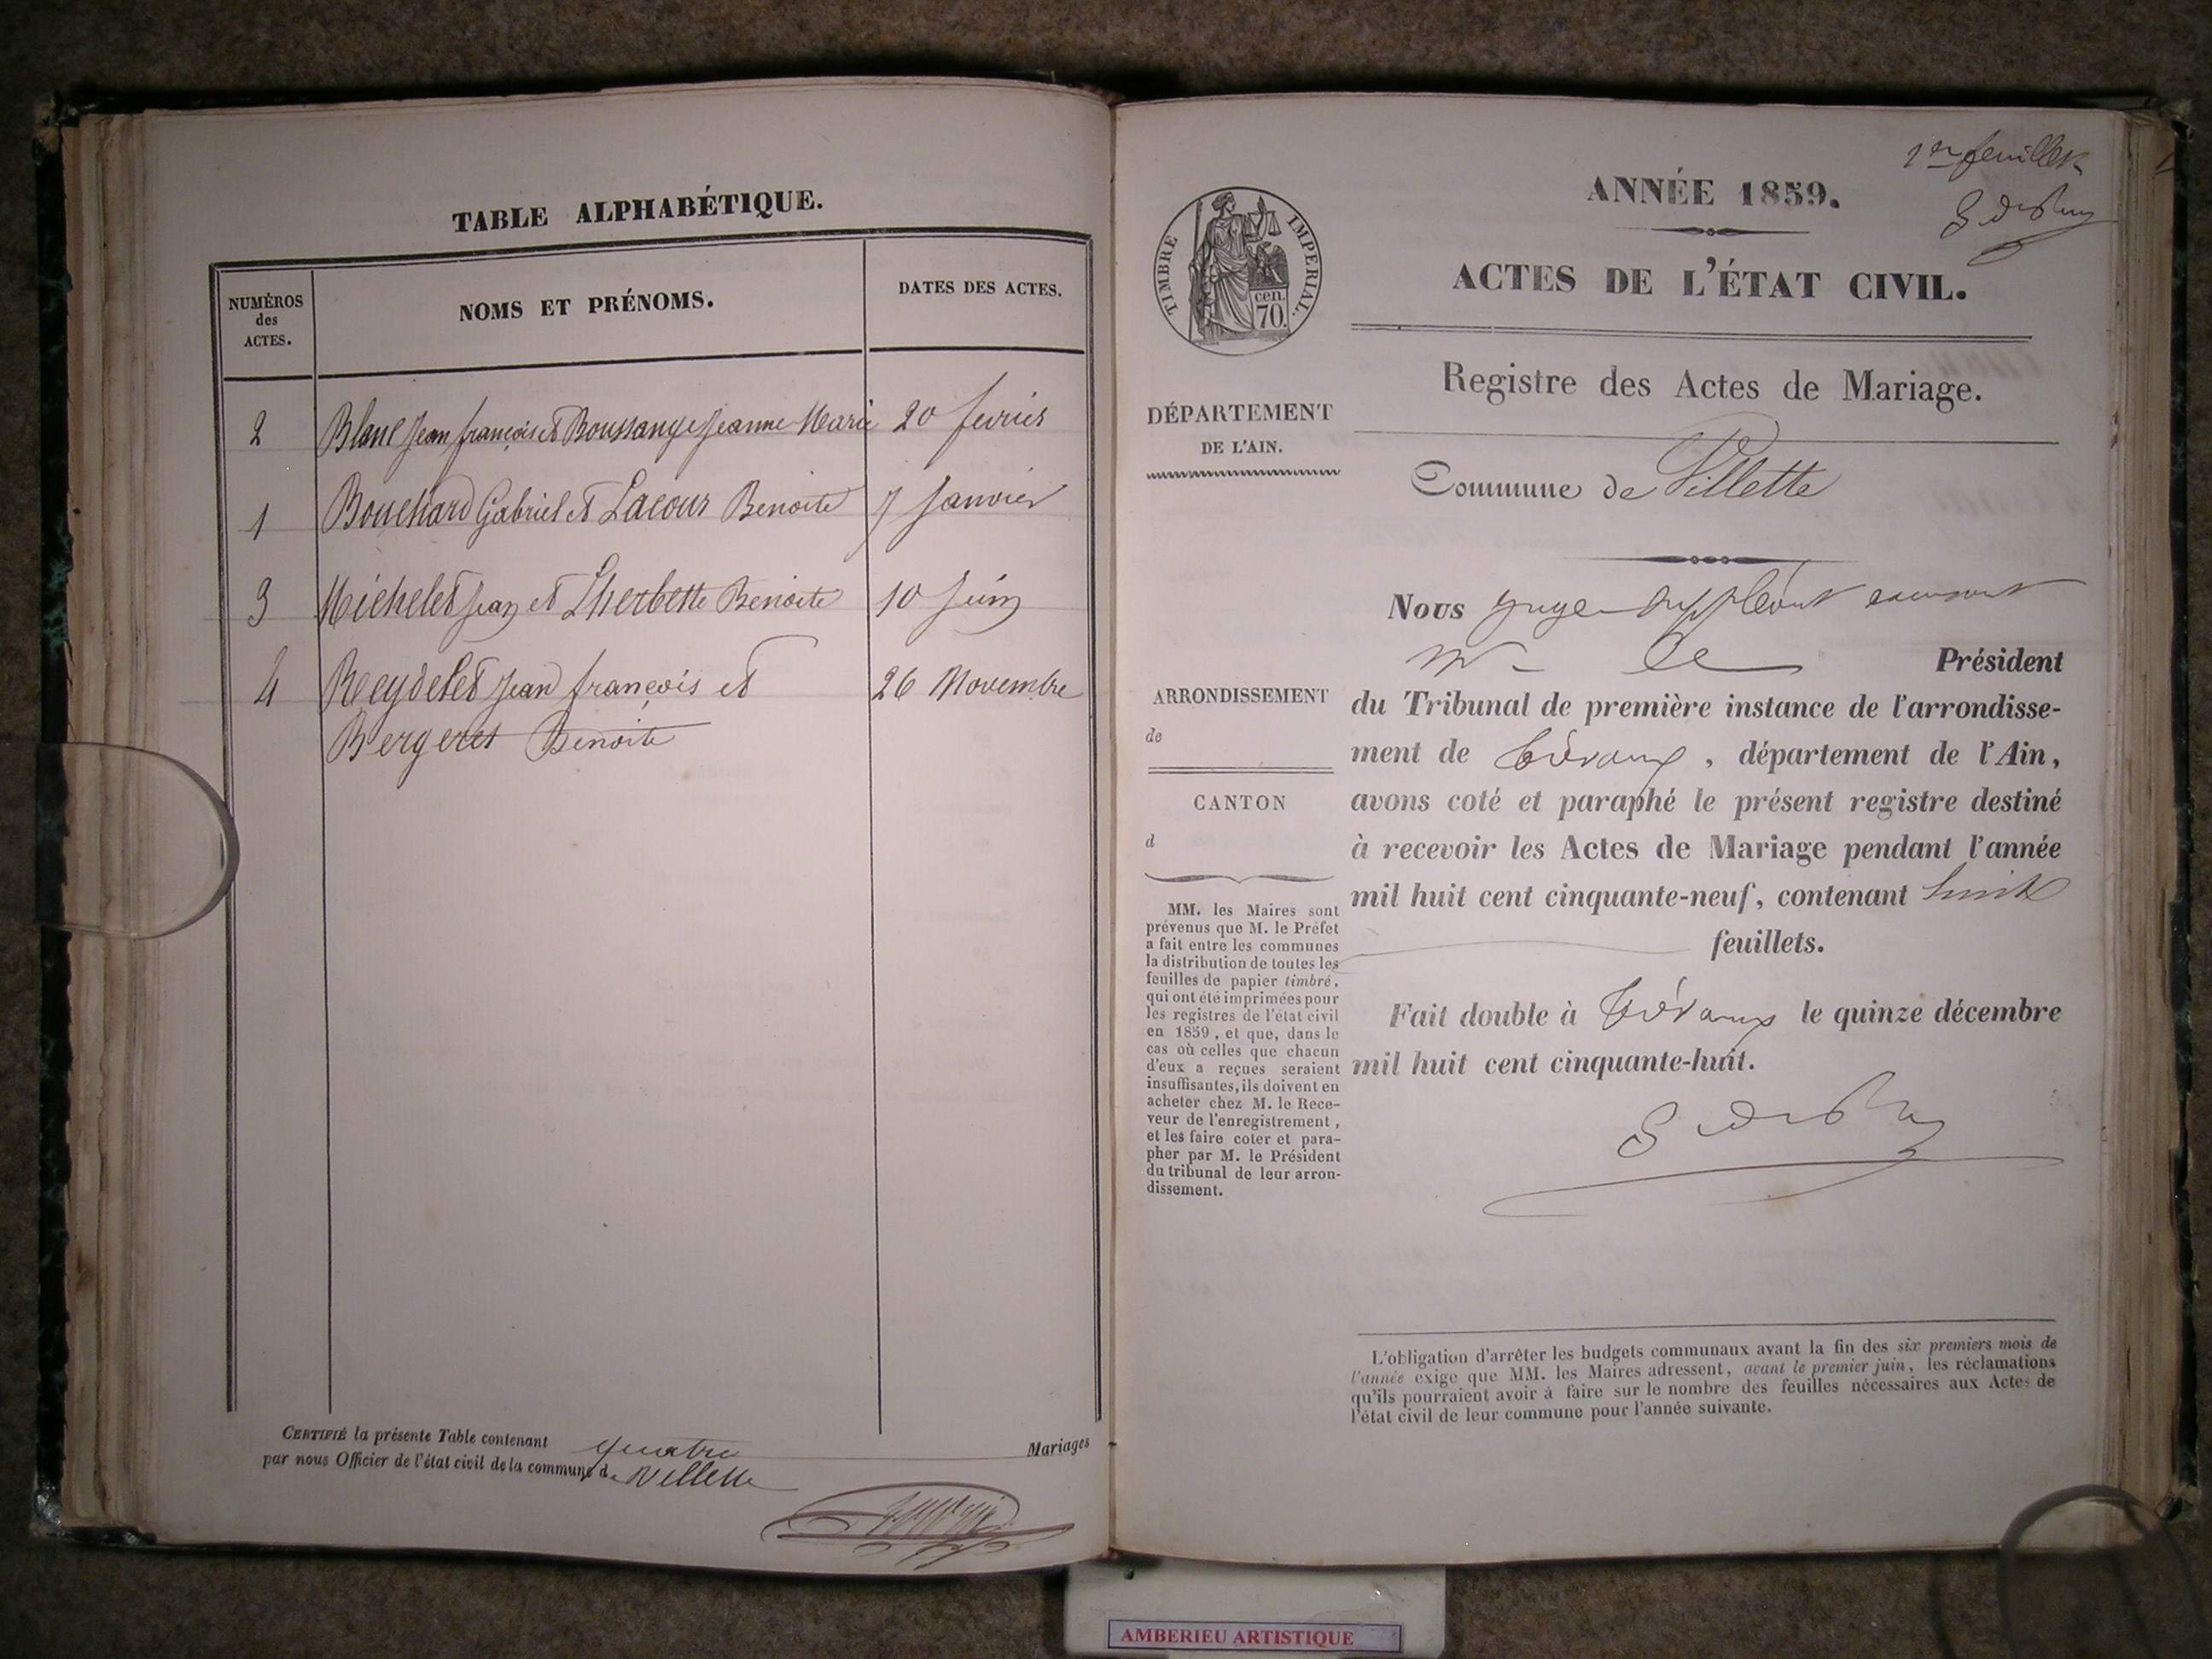 TABLE ALPHABÉTIQUE.
NUMÉROS des ACTES.
NOMS ET PRÉNOMS.
DATES DES ACTES.
2 Blanc Jean françois et Boussange Jeanne-Marie 20 fevrier
1 Bouchard Gabriel et Lacour Benoite 7 Janvier
3 Michelet Jean et Lherbette Benoite 10 Juin
4 Reydelet Jean françois et 26 Novembre
Bergeret Benoite
CERTIFIÉ la présente Table contenant quatre Mariages
par nous Officier de l'état civil de la commune de Villette
1er feuillet
ANNÉE 1859.
ACTES DE L'ÉTAT CIVIL.
TIMBRE IMPERIAL.
cen.
70.
Registre des Actes de Mariage.
DÉPARTEMENT
DE L'AIN.
Commune de Villette
Nous juge suppléant
Mr le Président
du Tribunal de première instance de l'arrondisse-
ment de Trévoux, département de l'Ain,
avons coté et paraphé le présent registre destiné
à recevoir les Actes de Mariage pendant l'année
mil huit cent cinquante-neuf, contenant huit
feuillets.
Fait double à Trévoux le quinze décembre
mil huit cent cinquante-huit.
ARRONDISSEMENT
de
CANTON
d
MM. les Maires sont
prévenus que M. le Préfet
a fait entre les communes
la distribution de toutes les
feuilles de papier timbré,
qui ont été imprimées pour
les registres de l'état civil
en 1859, et que, dans le
cas où celles que chacun
d'eux a reçues seraient
insuffisantes, ils doivent en
acheter chez M. le Rece-
veur de l'enregistrement,
et les faire coter et para-
pher par M. le Président
du tribunal de leur arron-
dissement.
L'obligation d'arrêter les budgets communaux avant la fin des six premiers mois de
l'année exige que MM. les Maires adressent, avant le premier juin, les réclamations
qu'ils pourraient avoir à faire sur le nombre des feuilles nécessaires aux Actes de
l'état civil de leur commune pour l'année suivante.
AMBERIEU ARTISTIQUE